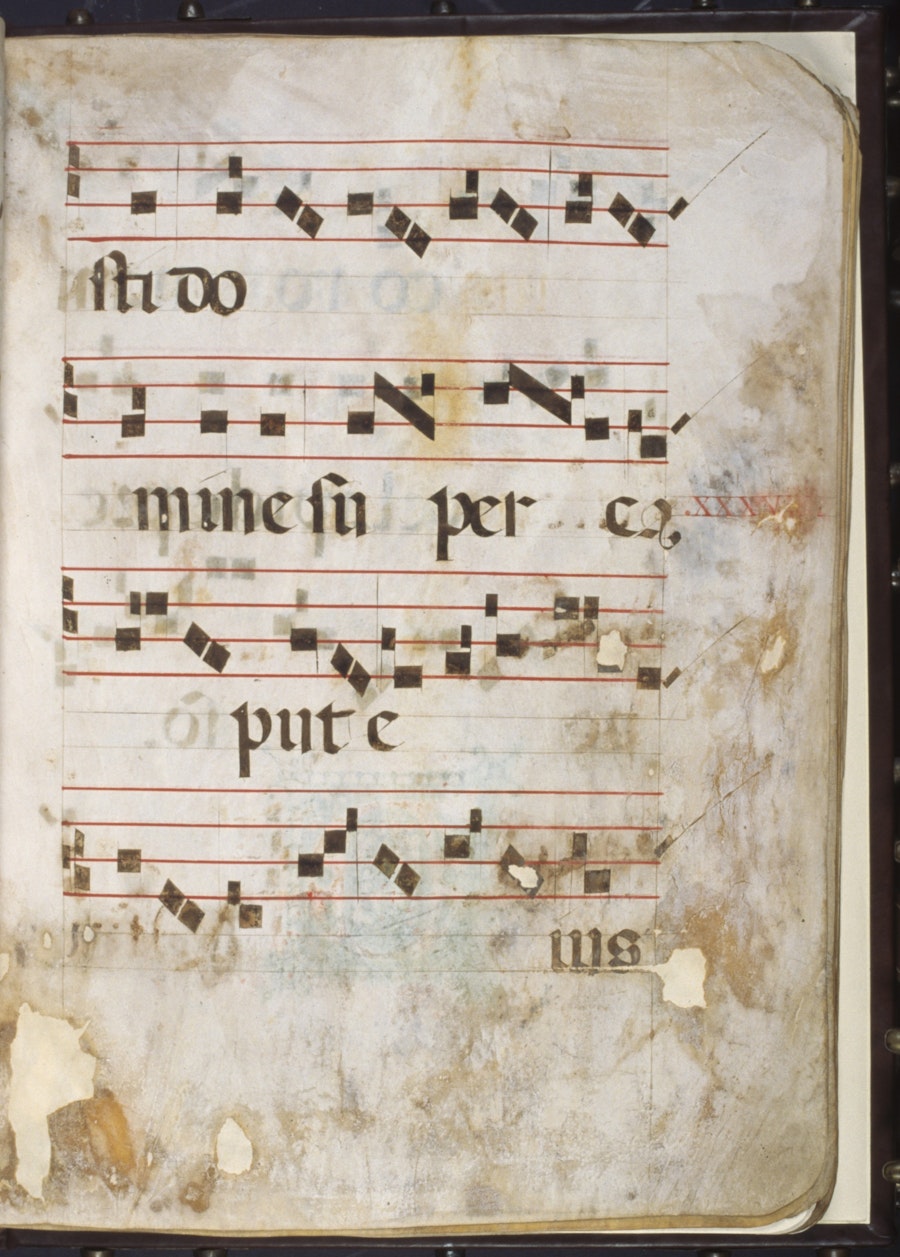 sti do
mine su per ca
put e
ius